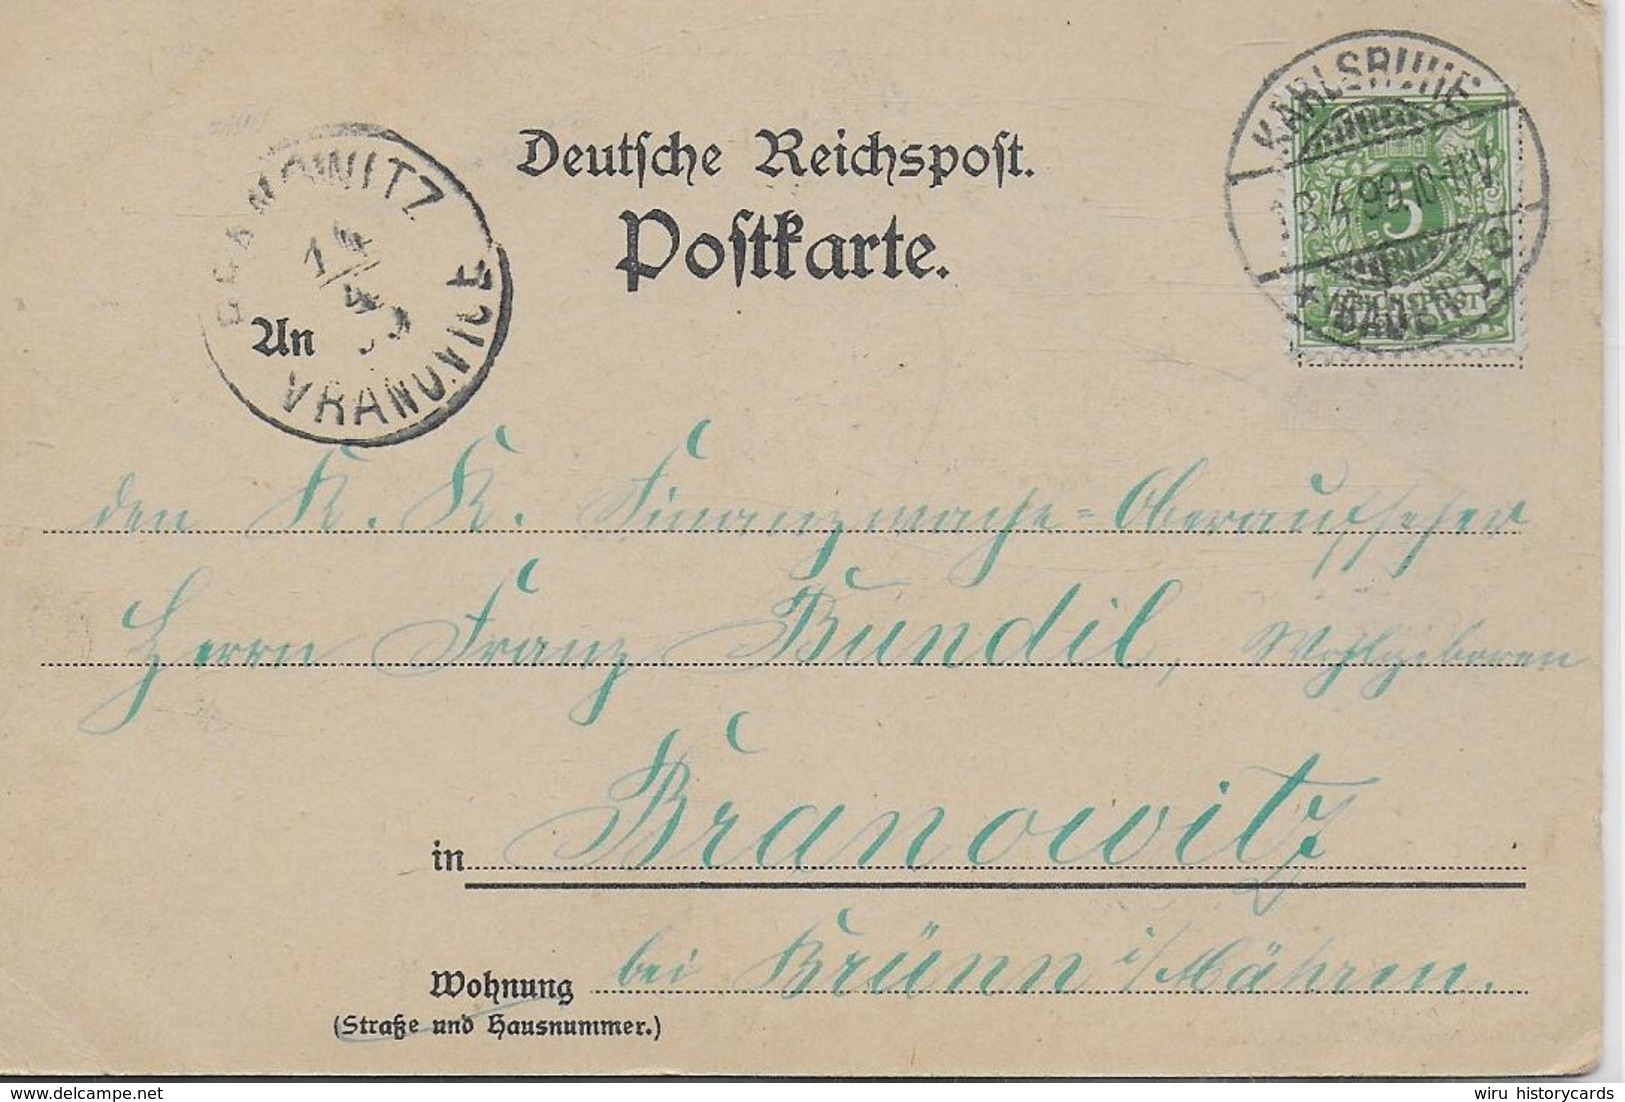 Deutsche Reichspost.
Postkarte.
KARLSRUHE
3.4.99.10-11V.
* (BADEN) 1c
5
REICHSPOST
BRANOWITZ
14
4
99
VRANOVICE
An
den K. K. Finanzwache-Oberaufseher
Herrn Franz Bundil, Wohlgeboren
in Branowitz
Wohnung bei Brünn i/Mähren.
(Straße und Hausnummer.)
wiru historycards